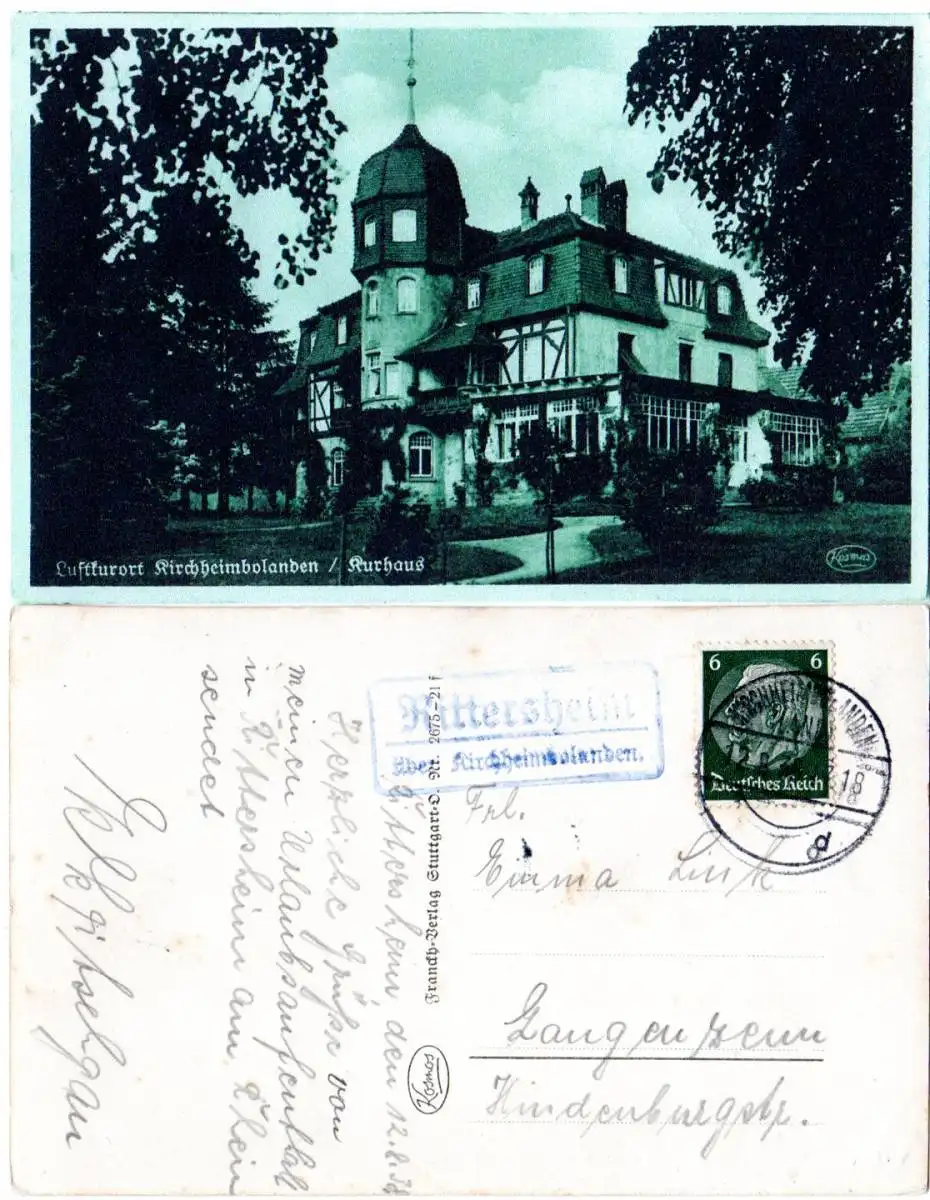 Luftkurort Kirchheimbolanden / Kurhaus
Kosmos
Rittersheim
über Kirchheimbolanden.
6 6
Deutsches Reich
KIRCHHEIMBOLANDEN
18
a
Rittersheim den 12.8.
Herzliche Grüße von
meinen Urlaubsaufenthalt
in Rittersheim am Rhein
sendet
Franckh-Verlag Stuttgart-O. Nr. 2675-21f
Kosmos
Frl.
Emma Link
Langenzenn
Hindenburgstr.